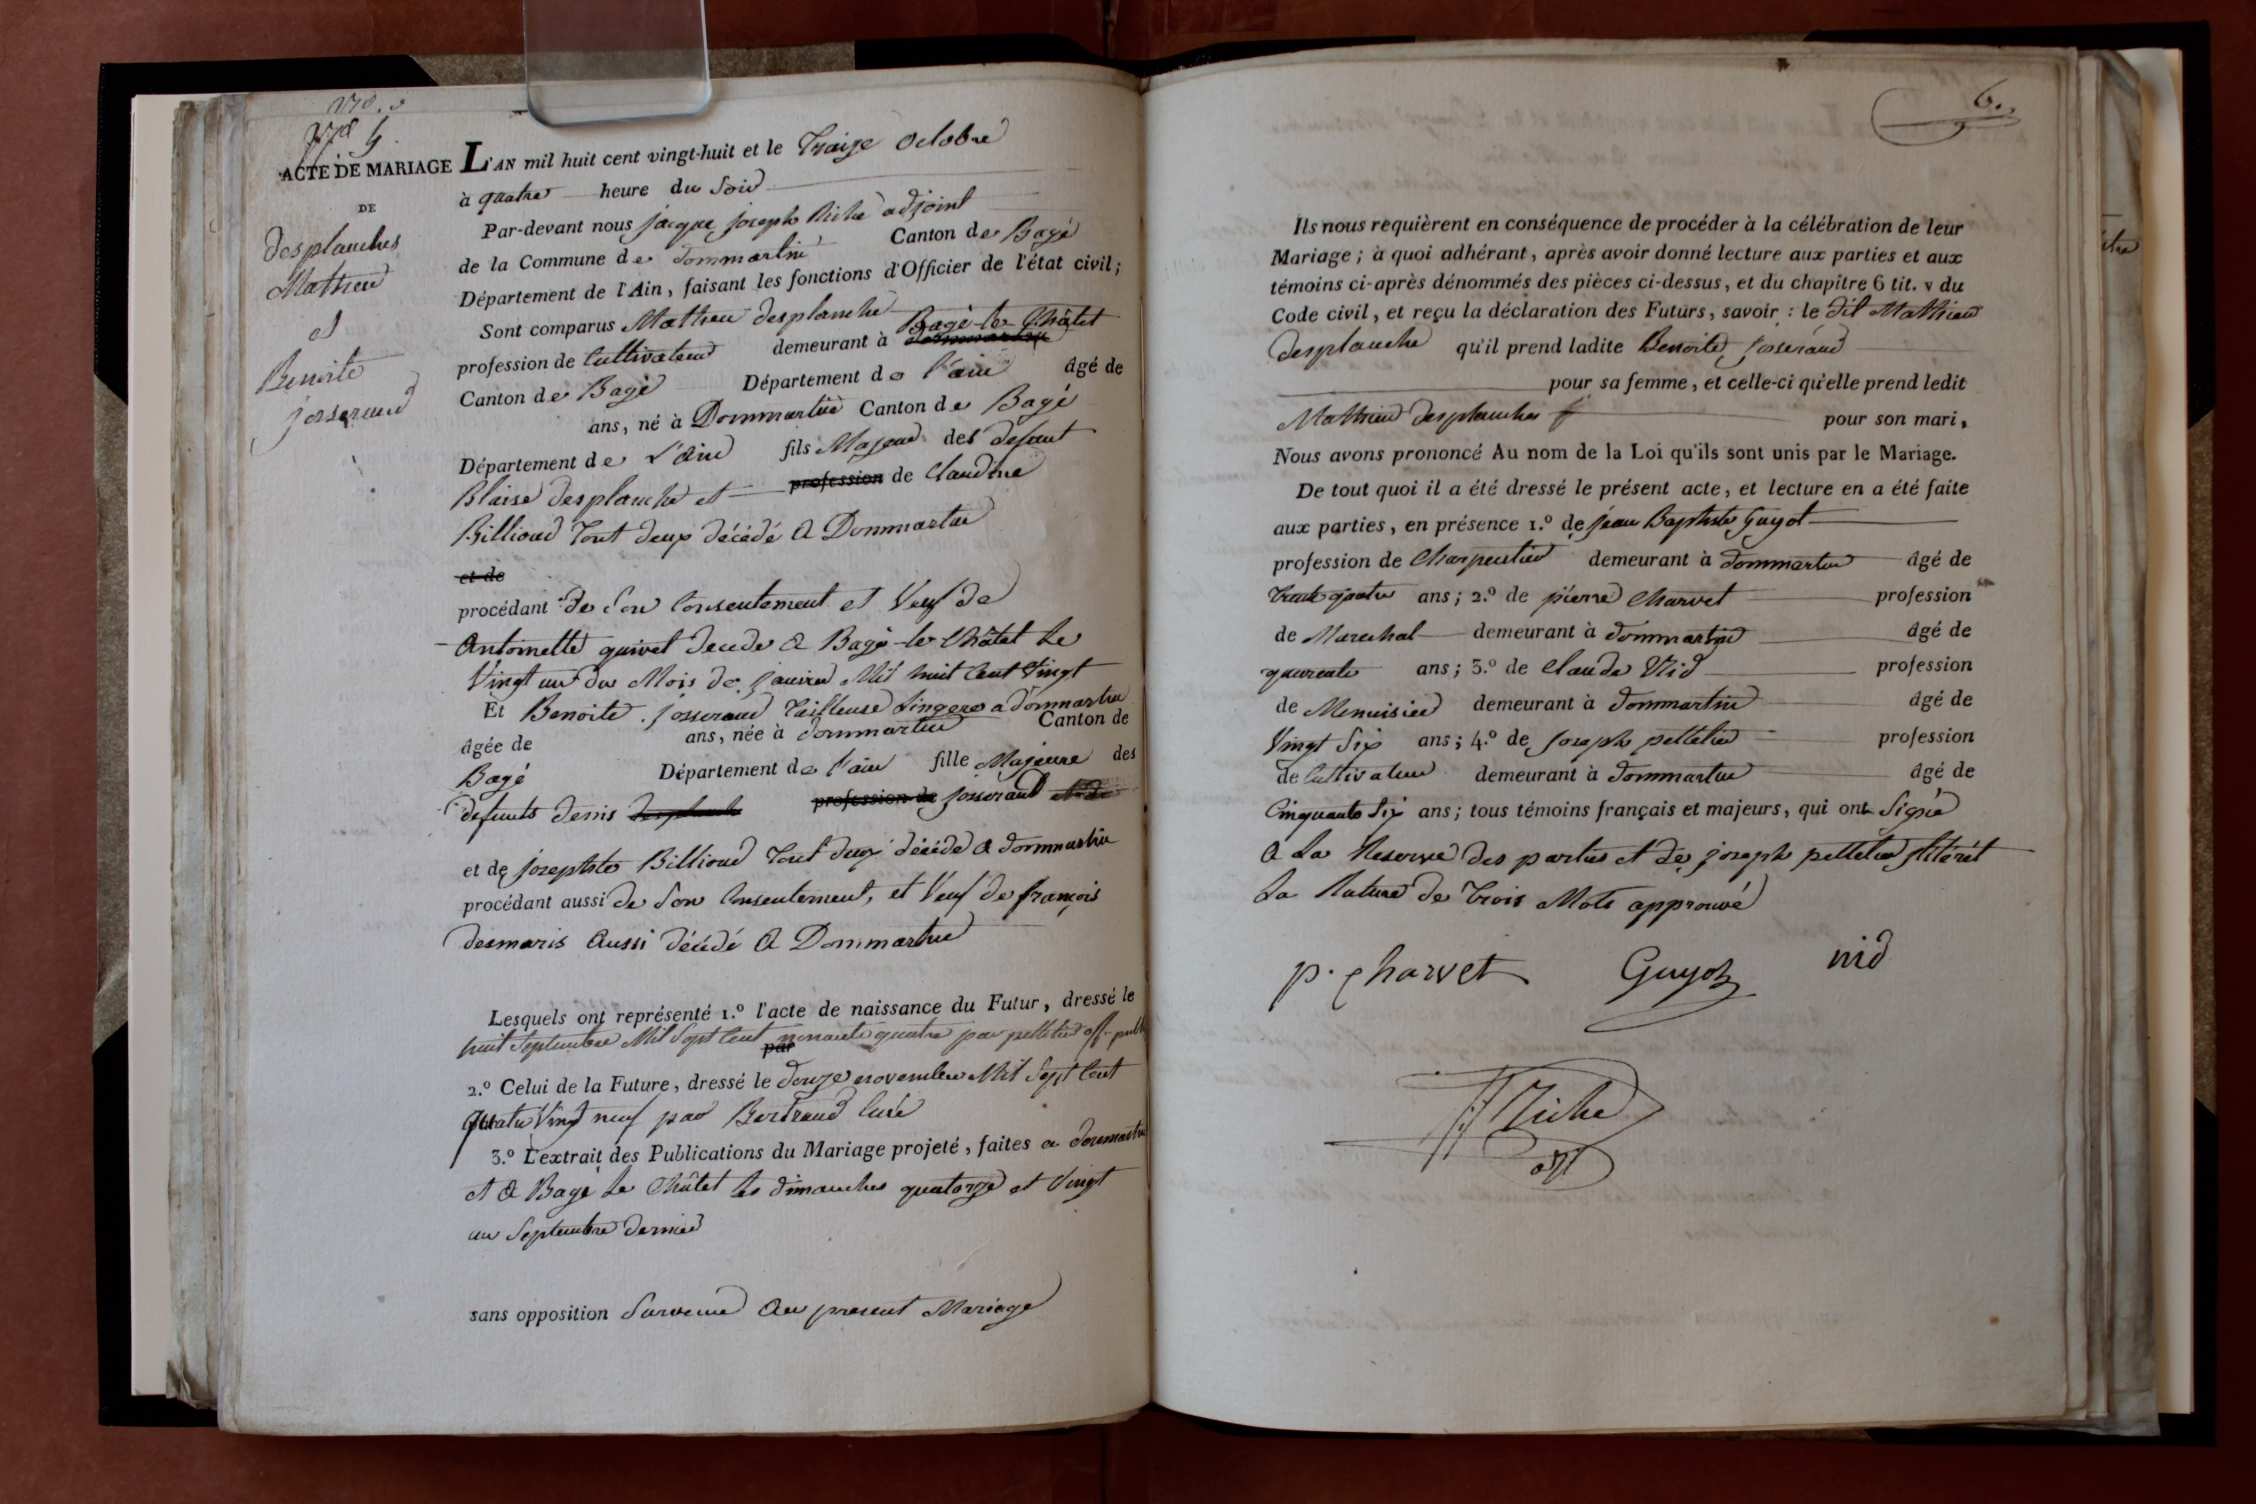 N.º 5
ACTE DE MARIAGE
DE
desplanches
Mathieu
et
Benoite
josserand
L'AN mil huit cent vingt-huit et le Traize octobre
à quatre heure du Soir
Par-devant nous jacque joseph Niche adjoint
de la Commune de dommartin Canton de Bagé
Département de l'Ain, faisant les fonctions d'Officier de l'état civil;
Sont comparus Mathieu desplanche
profession de Cultivateur demeurant à Bagé le Châtel
Canton de Bagé Département de l'ain âgé de
ans, né à Dommartin Canton de Bagé
Département de L'Ain fils Majeur des defunt
Blaise desplanche et profession de Claudine
Billioud Tout deux décédé a Dommartin
et de
procédant de Son Consentement et Veuf de
Antoinette quivet decede a Bagé le Châtel le
Vingt un du Mois de janvier Mil huit Cent Vingt
Et Benoite josserand Tailleuse Lingere a dommartin
âgée de ans, née à dommartin Canton de
Bagé Département de l'ain fille Majeure des
defunts denis profession de josserand et de
et de josephte Billioud Tout deux décédé a dommartin
procédant aussi de Son Consentement, et Veuf de françois
desmaris Aussi décédé a Dommartin
Lesquels ont représenté 1.º l'acte de naissance du Futur, dressé le
huit Septembre Mil Sept Cent nonante quatre par pelletier off. publ
par
2.º Celui de la Future, dressé le douze novembre Mil Sept Cent
quatre Vingt neuf par Bertrand Curé
3.º L'extrait des Publications du Mariage projeté, faites a dommartin
et a Bagé le Châtel les dimanches quatorze et Vingt
un Septembre dernier
sans opposition Survenue au present Mariage
6.
Ils nous requièrent en conséquence de procéder à la célébration de leur
Mariage; à quoi adhérant, après avoir donné lecture aux parties et aux
témoins ci-après dénommés des pièces ci-dessus, et du chapitre 6 tit. v du
Code civil, et reçu la déclaration des Futurs, savoir : le dit Mathieu
desplanche qu'il prend ladite Benoite josserand
pour sa femme, et celle-ci qu'elle prend ledit
Mathieu desplanches pour son mari,
Nous avons prononcé Au nom de la Loi qu'ils sont unis par le Mariage.
De tout quoi il a été dressé le présent acte, et lecture en a été faite
aux parties, en présence 1.º de jean Baptiste Guyot
profession de Charpentier demeurant à dommartin âgé de
trente quatre ans; 2.º de pierre Charvet profession
de Marechal demeurant à dommartin âgé de
quarente ans; 3.º de Claude Nid profession
de Menuisier demeurant à dommartin âgé de
Vingt Six ans; 4.º de joseph pelletier profession
de Cultivateur demeurant à dommartin âgé de
Cinquante Six ans; tous témoins français et majeurs, qui ont Signé
a la Reserve des parties et de joseph pelletier
la Rature de trois Mots approuvé
p. charvet Guyot nid
Niche
adjt